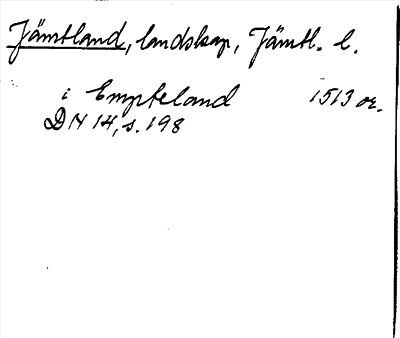 Jämtland, landskap, Jämtl. l.
i Empteland 1513 or.
DN 14, s. 198